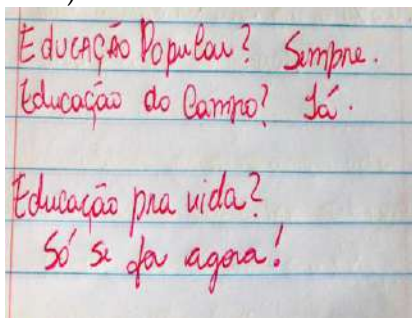 Educação Popular? Sempre.
Educação do Campo? Já.
Educação pra vida?
Só se for agora!